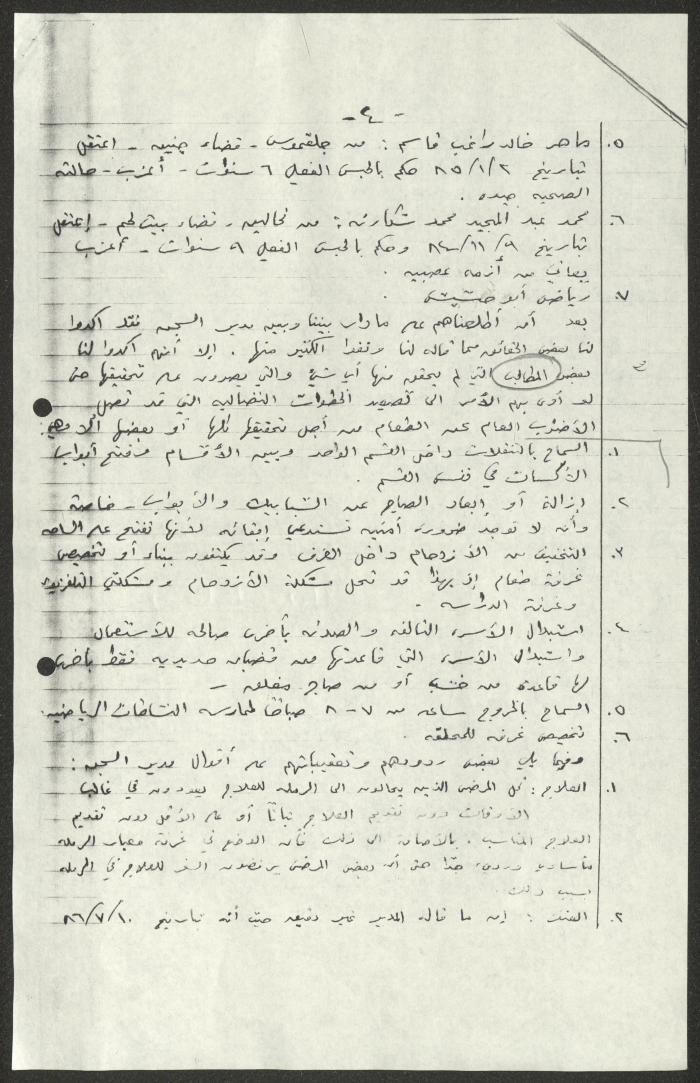 - ٤ -
٥. ماهر خالد راغب قاسم : من جلقموس - قضاء جنين - اعتقل
بتاريخ ٨٥/١/٢ حكم بالحبس الفعلي ٦ سنوات - أعزب - حالته
الصحية جيده .
٦. محمد عبد المجيد محمد شكارنه : من نحالين - قضاء بيت لحم - إعتقل
بتاريخ وحكم بالحبس الفعلي ٩ سنوات - أعزب
يعاني من أزمه عصبيه .
٧. رياض أبو حشيش .
بعد أن أطلعناهم على ما دار بيننا وبين مدير السجن فقد اكدوا
لنا بعض الحقائق مما قاله لنا ونفوا الكثير منها . إلا أنهم اكدوا لنا
بعض المطالب التي لم يتحقق منها أي شيء والتي يصرون على تحقيقها حتى
لو أدى بهم الأمر الى تصعيد الخطوات النضاليه التي قد تصل
الأضراب العام عن الطعام من أجل تحقيقها كلها أو بعضها ألا وهي :
١. السماح بالتنقلات داخل القسم الواحد وبين الأقسام وفتح أبواب
الأكسات في نفس القسم .
٢. إزالة أو إبعاد الصاج عن الشبابيك والأبواب - خاصة
وأن لا توجد ضروره أمنيه تستدعي إبقائه لأنها تفتح على الساحه
٣. التخفيف من الأزدحام داخل الغرف وقد يكتفون ببناء أو تخصيص
غرفة طعام إذ بهذا قد تحل مشكلة الأزدحام ومشكلتي التلفزيون
وغرفة الدراسه .
٤. استبدال الأسره التالفه والصدئه بأخرى صالحه للأستعمال
واستبدال الأسره التي قاعدتها من قضبان حديديه فقط بأخرى
لها قاعدة من خشب أو من صاج مغلقه -
٥. السماح بالخروج ساعه من ٧ - ٨ صباحًا لممارسه النشاطات الرياضيه
٦. تخصيص غرفه للمحلقه .
وفيما يلي بعض ردودهم وتعقيباتهم على أقوال مدير السجن :
١. العلاج : كل المرضى الذين يحالون الى الرمله للعلاج يعودون في غالب
الأوقات دون تقديم العلاج نهائًا أو على الأقل دون تقديم
العلاج المناسب . بالأضافه الى ذلك فأن الوضع في غرفة معبار الرمله
مأساوي وردىء جدًا حتى أن بعض المرضى يرفضون السفر للعلاج في الرمله
بسبب ذلك .
٢. : إن ما قاله المدير غير دقيق حيث أنه بتاريخ ٨٦/٧/١٠